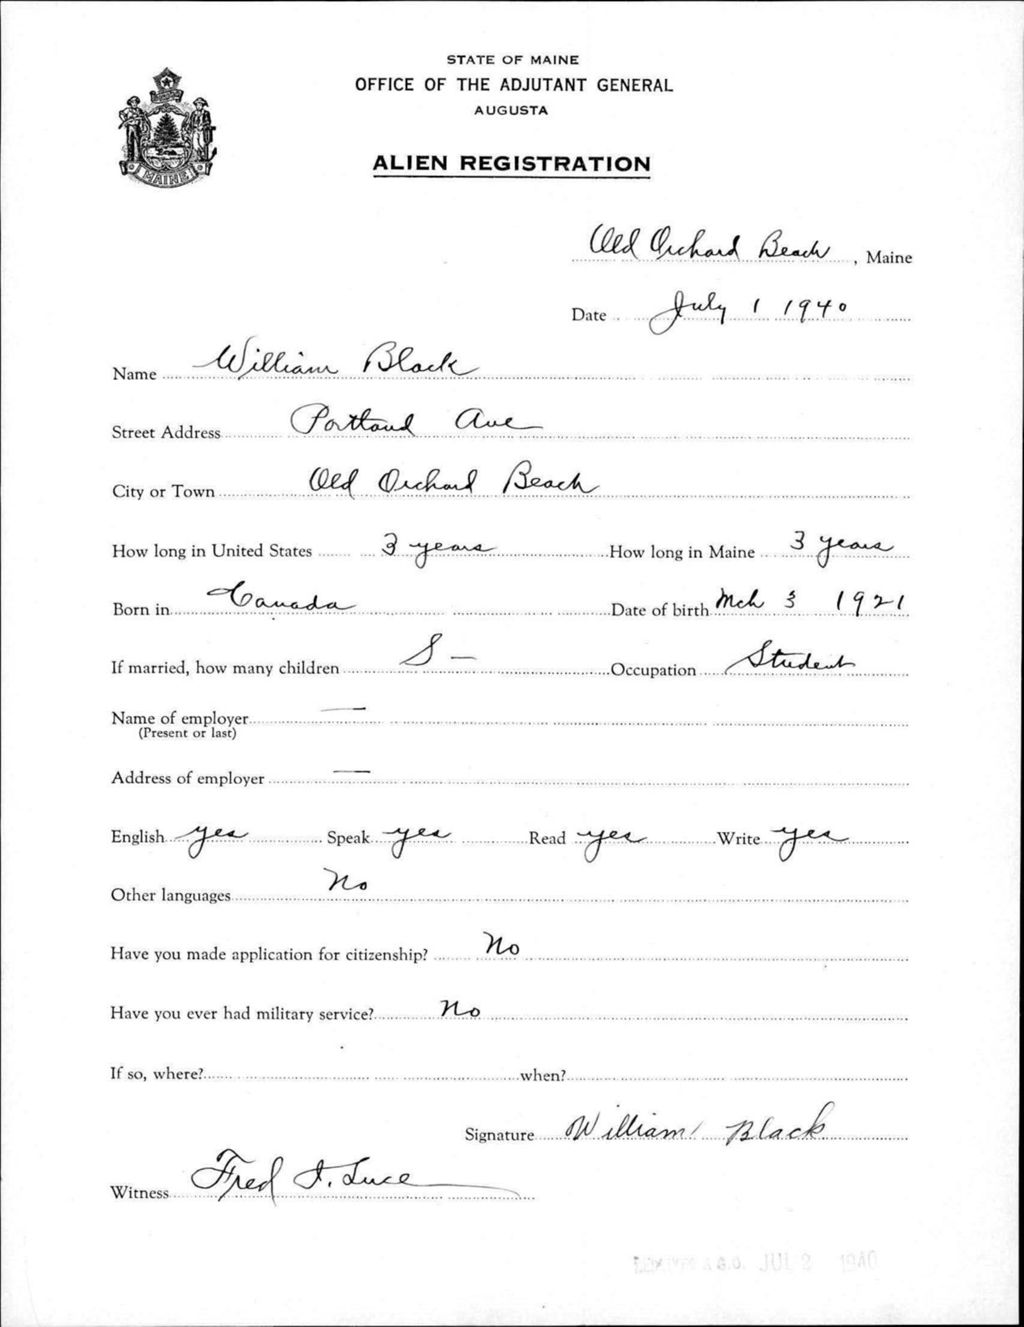 STATE OF MAINE
OFFICE OF THE ADJUTANT GENERAL
AUGUSTA
MAINE
ALIEN REGISTRATION
Old Orchard Beach, Maine
Date July 1 1940
Name William Black
Street Address Portland Ave
City or Town Old Orchard Beach
How long in United States 3 years How long in Maine 3 years
Born in Canada Date of birth Mch 3 1921
If married, how many children S — Occupation Student
Name of employer —
(Present or last)
Address of employer —
English yes Speak yes Read yes Write yes
Other languages No
Have you made application for citizenship? No
Have you ever had military service? No
If so, where? when?
Signature William Black
Witness Fred I. Luce
A.G.O. JUL 2 1940